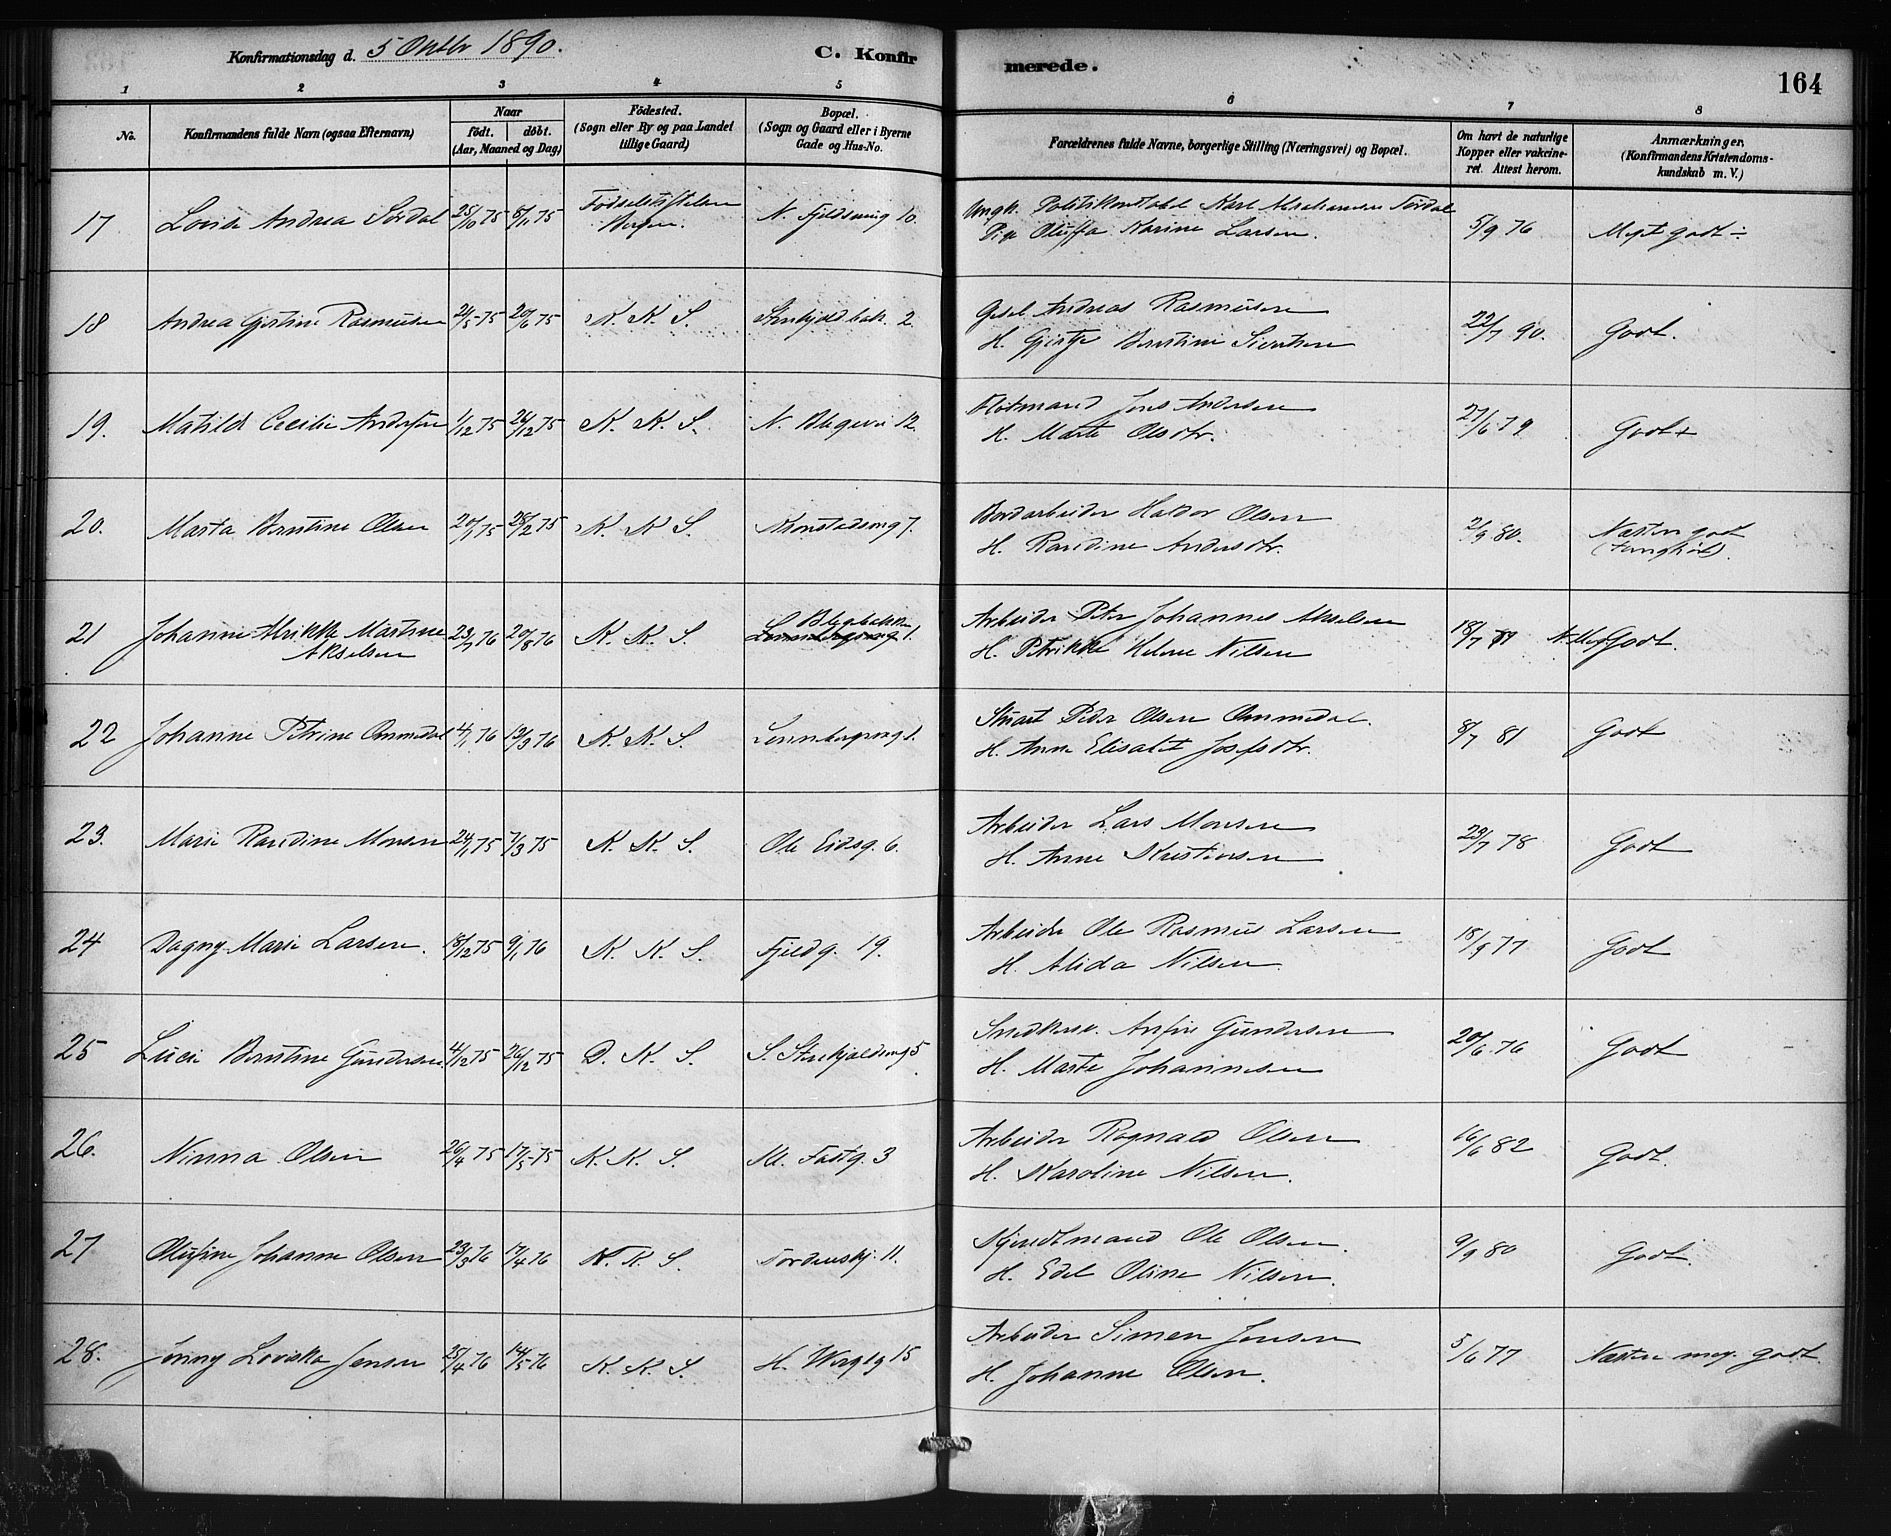 Konfirmationsdag d. 5 Oktbr 1890.
C. Konfirmerede.
164
1 2 3 4 5 6 7 8
No.
Konfirmandens fulde Navn (ogsaa Efternavn)
Naar
födt. döbt.
(Aar, Maaned og Dag)
Födested.
(Sogn eller By og paa Landet
tillige Gaard)
Bopæl.
(Sogn og Gaard eller i Byerne
Gade og Hus-No.
Forældrenes fulde Navne, borgerlige Stilling (Næringsvei) og Bopæl.
Om havt de naturlige
Kopper eller vakcine-
ret. Attest herom.
Anmærkninger.
(Konfirmandens Kristendoms-
kundskab m. V.)
17 Lovise Andrea Sørdal 25/10 75 8/11 75 Fødselsstiftelsen Bergen. N. Fjeldsmug 10. 5/9 76 Meget godt ÷
Ungk. Politikonstabel Abrahamsen Sørdal
Pige Oluffa Karine Larsen.
18 Andrea Gjertine Rasmussen 24/5 75 20/6 75 K. K. S. 2. 22/7 90. Godt.
Andreas Rasmussen
H. Gjertje Berntine Sivertsen
19. Matilde Cecilie Andersen 1/12 75 26/12 75 K. K. S. N. Blegevei 12 27/6 79 Godt +
Flòtmand Jens Andersen
H. Marte Olsdtr.
20. Marta Berntine Olsen 20/1 75 28/2 75 K. K. S. Kronstadsmug 7. 2/9 80. Næsten godt
(tunghør).
Bordarbeider Haldor Olsen
H. Rasdine Andersdtr.
21 Johanne Alrikke Martine
Akselsen 23/7 76 20/8 76 K. K. S. 1. 18/7 81 Godt.
Arbeider Peter Johannes Akselsen
H. Petrikke Helene Nilsen
22 Johanne Petrine Ommedal 4/1 76 12/3 76 K. K. S. 1. 8/7 81 Godt
Stuart Peder Olsen Ommedal.
H. Anne Elisabet Josefsdtr.
23. Marie Rasdine Monsen 24/1 75 7/3 75 K. K. S. Ole Eidsg. 6. 23/7 78 Godt
Arbeider Lars Monsen
H. Anne Kristiansen
24 Dagny Marie Larsen. 18/12 75 9/1 76 K. K. S. Fjeldg. 19. 18/9 77 Godt
Arbeider Ole Rasmus Larsen
H. Alida Nilsen.
25 Lucie Berntine Gundersen 4/12 75 26/12 75 D. K. S. S. Stenkjeldsmug 5 20/6 76 Godt
Snedkersv. Anfin Gundersen
H. Marte Johannesen
26. Ninna Olsen 26/4 75 17/5 75 K. K. S. 3 16/6 82 Godt.
Arbeider Rognald Olsen
H. Karoline Nilsen.
27 Olufine Johanne Olsen 23/3 76 17/4 76 N. K. S. Tordenskj. 11. 9/9 80 Godt.
Ole Olsen.
H. Edel Oline Nilsen.
28. Jenny Loviska Jensen 25/4 76 14/5 76 K. K. S. 15 5/6 77 Næsten meg. godt.
Arbeider Simen Jensen
H. Johanne Olsen.